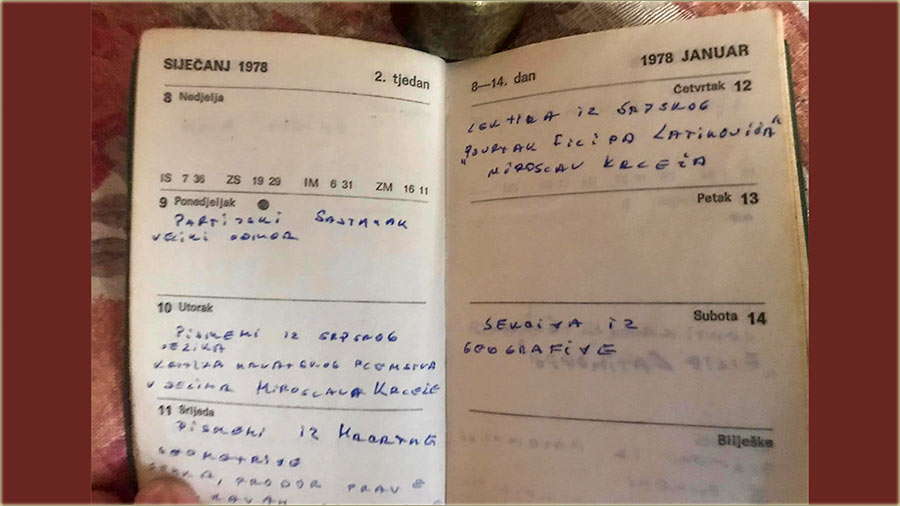 SIJEČANJ 1978
2. tjedan
8 Nedjelja
IS 7 36 ZS 19 29 IM 6 31 ZM 16 11
9 Ponedjeljak
PARTIJSKI SASTANAK
VELIKI ODMOR
10 Utorak
PISMENI IZ SRPSKOG
JEZIKA
KRITIKA HRVATSKOG PLEMSTVA
U DJELIMA MIROSLAVA KRLEŽE
11 Srijeda
PISMENI IZ NACRTNE
GEOMETRIJE
PRODOR PRAVE
8—14. dan
1978 JANUAR
Četvrtak 12
LEKTIRA IZ SRPSKOG
"POVRTAK FILIPA LATINOVIĆA"
MIROSLAV KRLEŽA
Petak 13
Subota 14
SEKCIJA IZ
GEOGRAFIJE
Bilješke